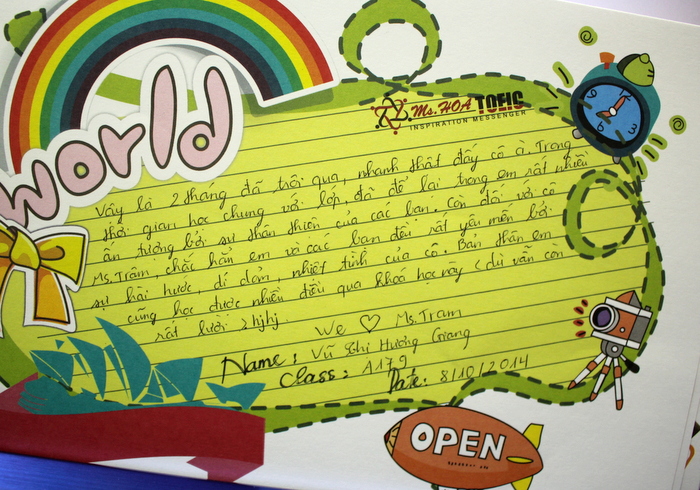 world
Ms. HOA TOEIC
INSPIRATION MESSENGER
Vậy là 2 tháng đã trôi qua, nhanh thật đấy cô ạ. Trong
thời gian học chung với lớp, đã để lại trong em rất nhiều
ấn tượng bởi sự thân thiện của các bạn. Còn đối với cô
Ms. Trâm, chắc hẳn em và các bạn đều rất yêu mến bởi
sự hài hước, dí dỏm, nhiệt tình của cô. Bản thân em
cũng học được nhiều điều qua khoá học này (dù vẫn còn
rất lười) hjhj
We ♡ Ms. Tram
Name: Vũ Thị Hương Giang
Class: A179
Date: 8/10/2014
OPEN